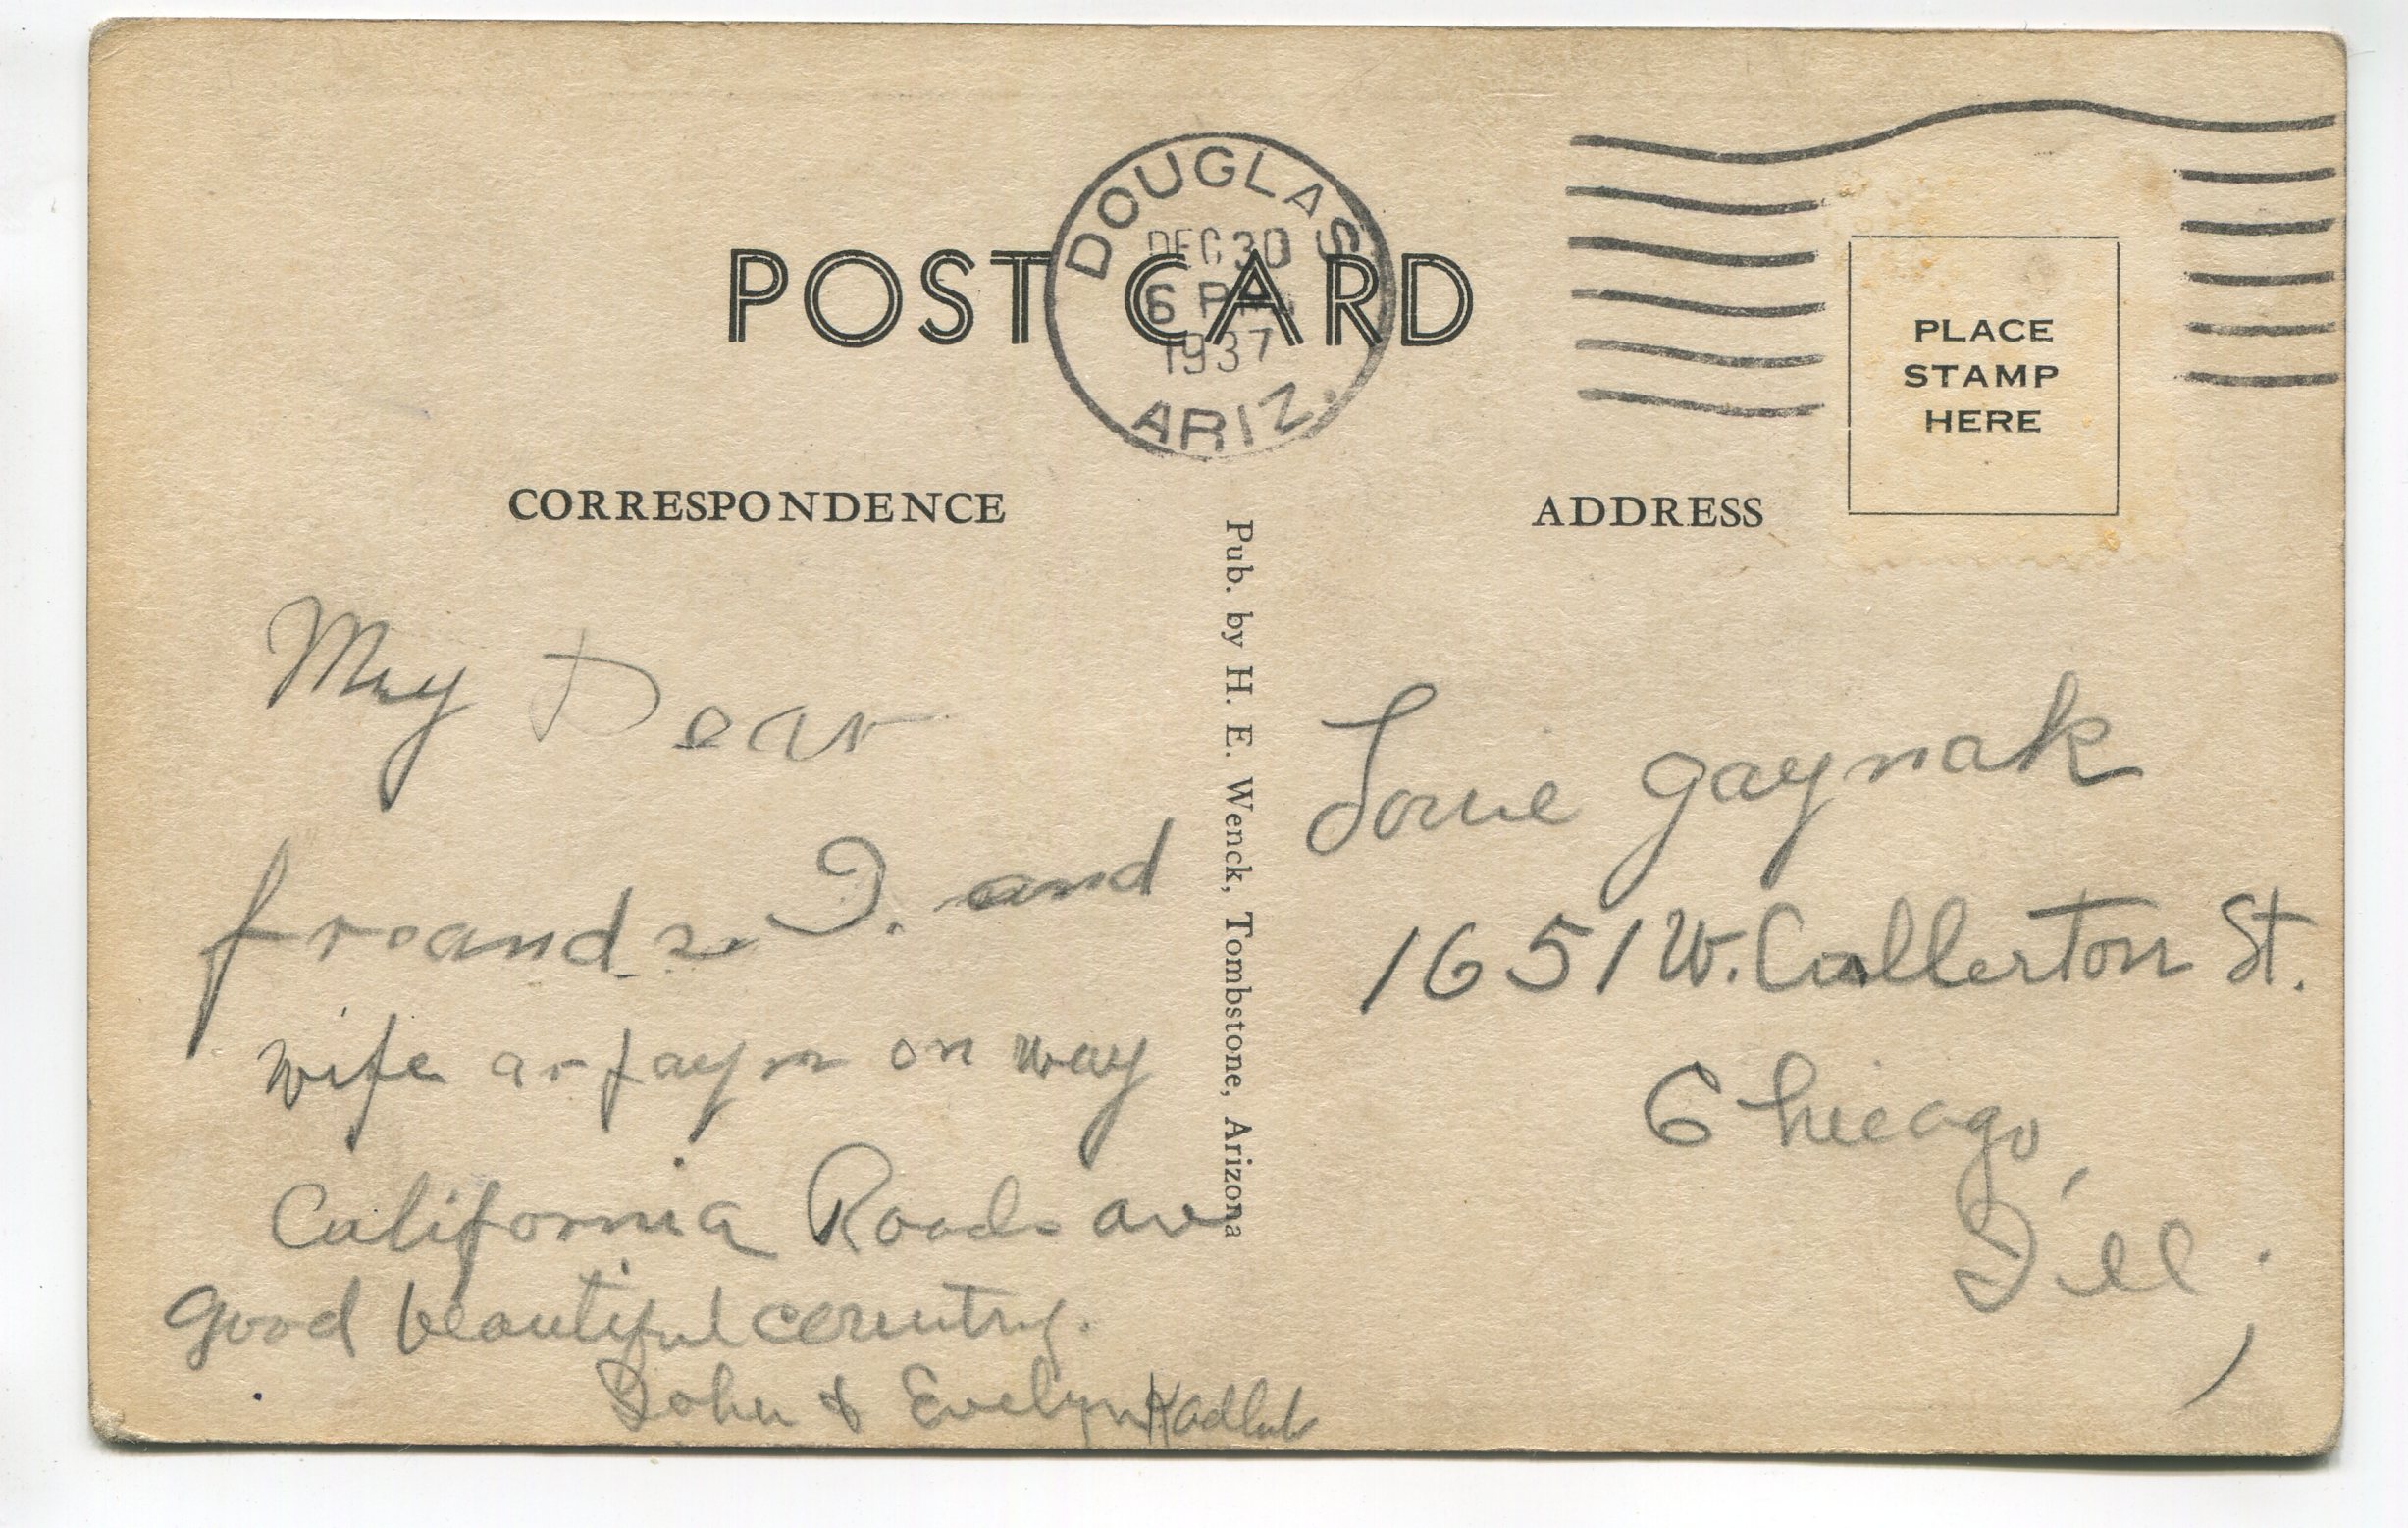 POST CARD
DOUGLAS
DEC 30
6 PM
1937
ARIZ.
PLACE
STAMP
HERE
CORRESPONDENCE
ADDRESS
Pub. by H. E. Wenck, Tombstone, Arizona
My Dear
I. and
wife on way
California Roads are
good beautiful country.
John & Evelyn Kadlub
Louie gaynak
1651 W. Cullerton St.
Chicago,
Ill